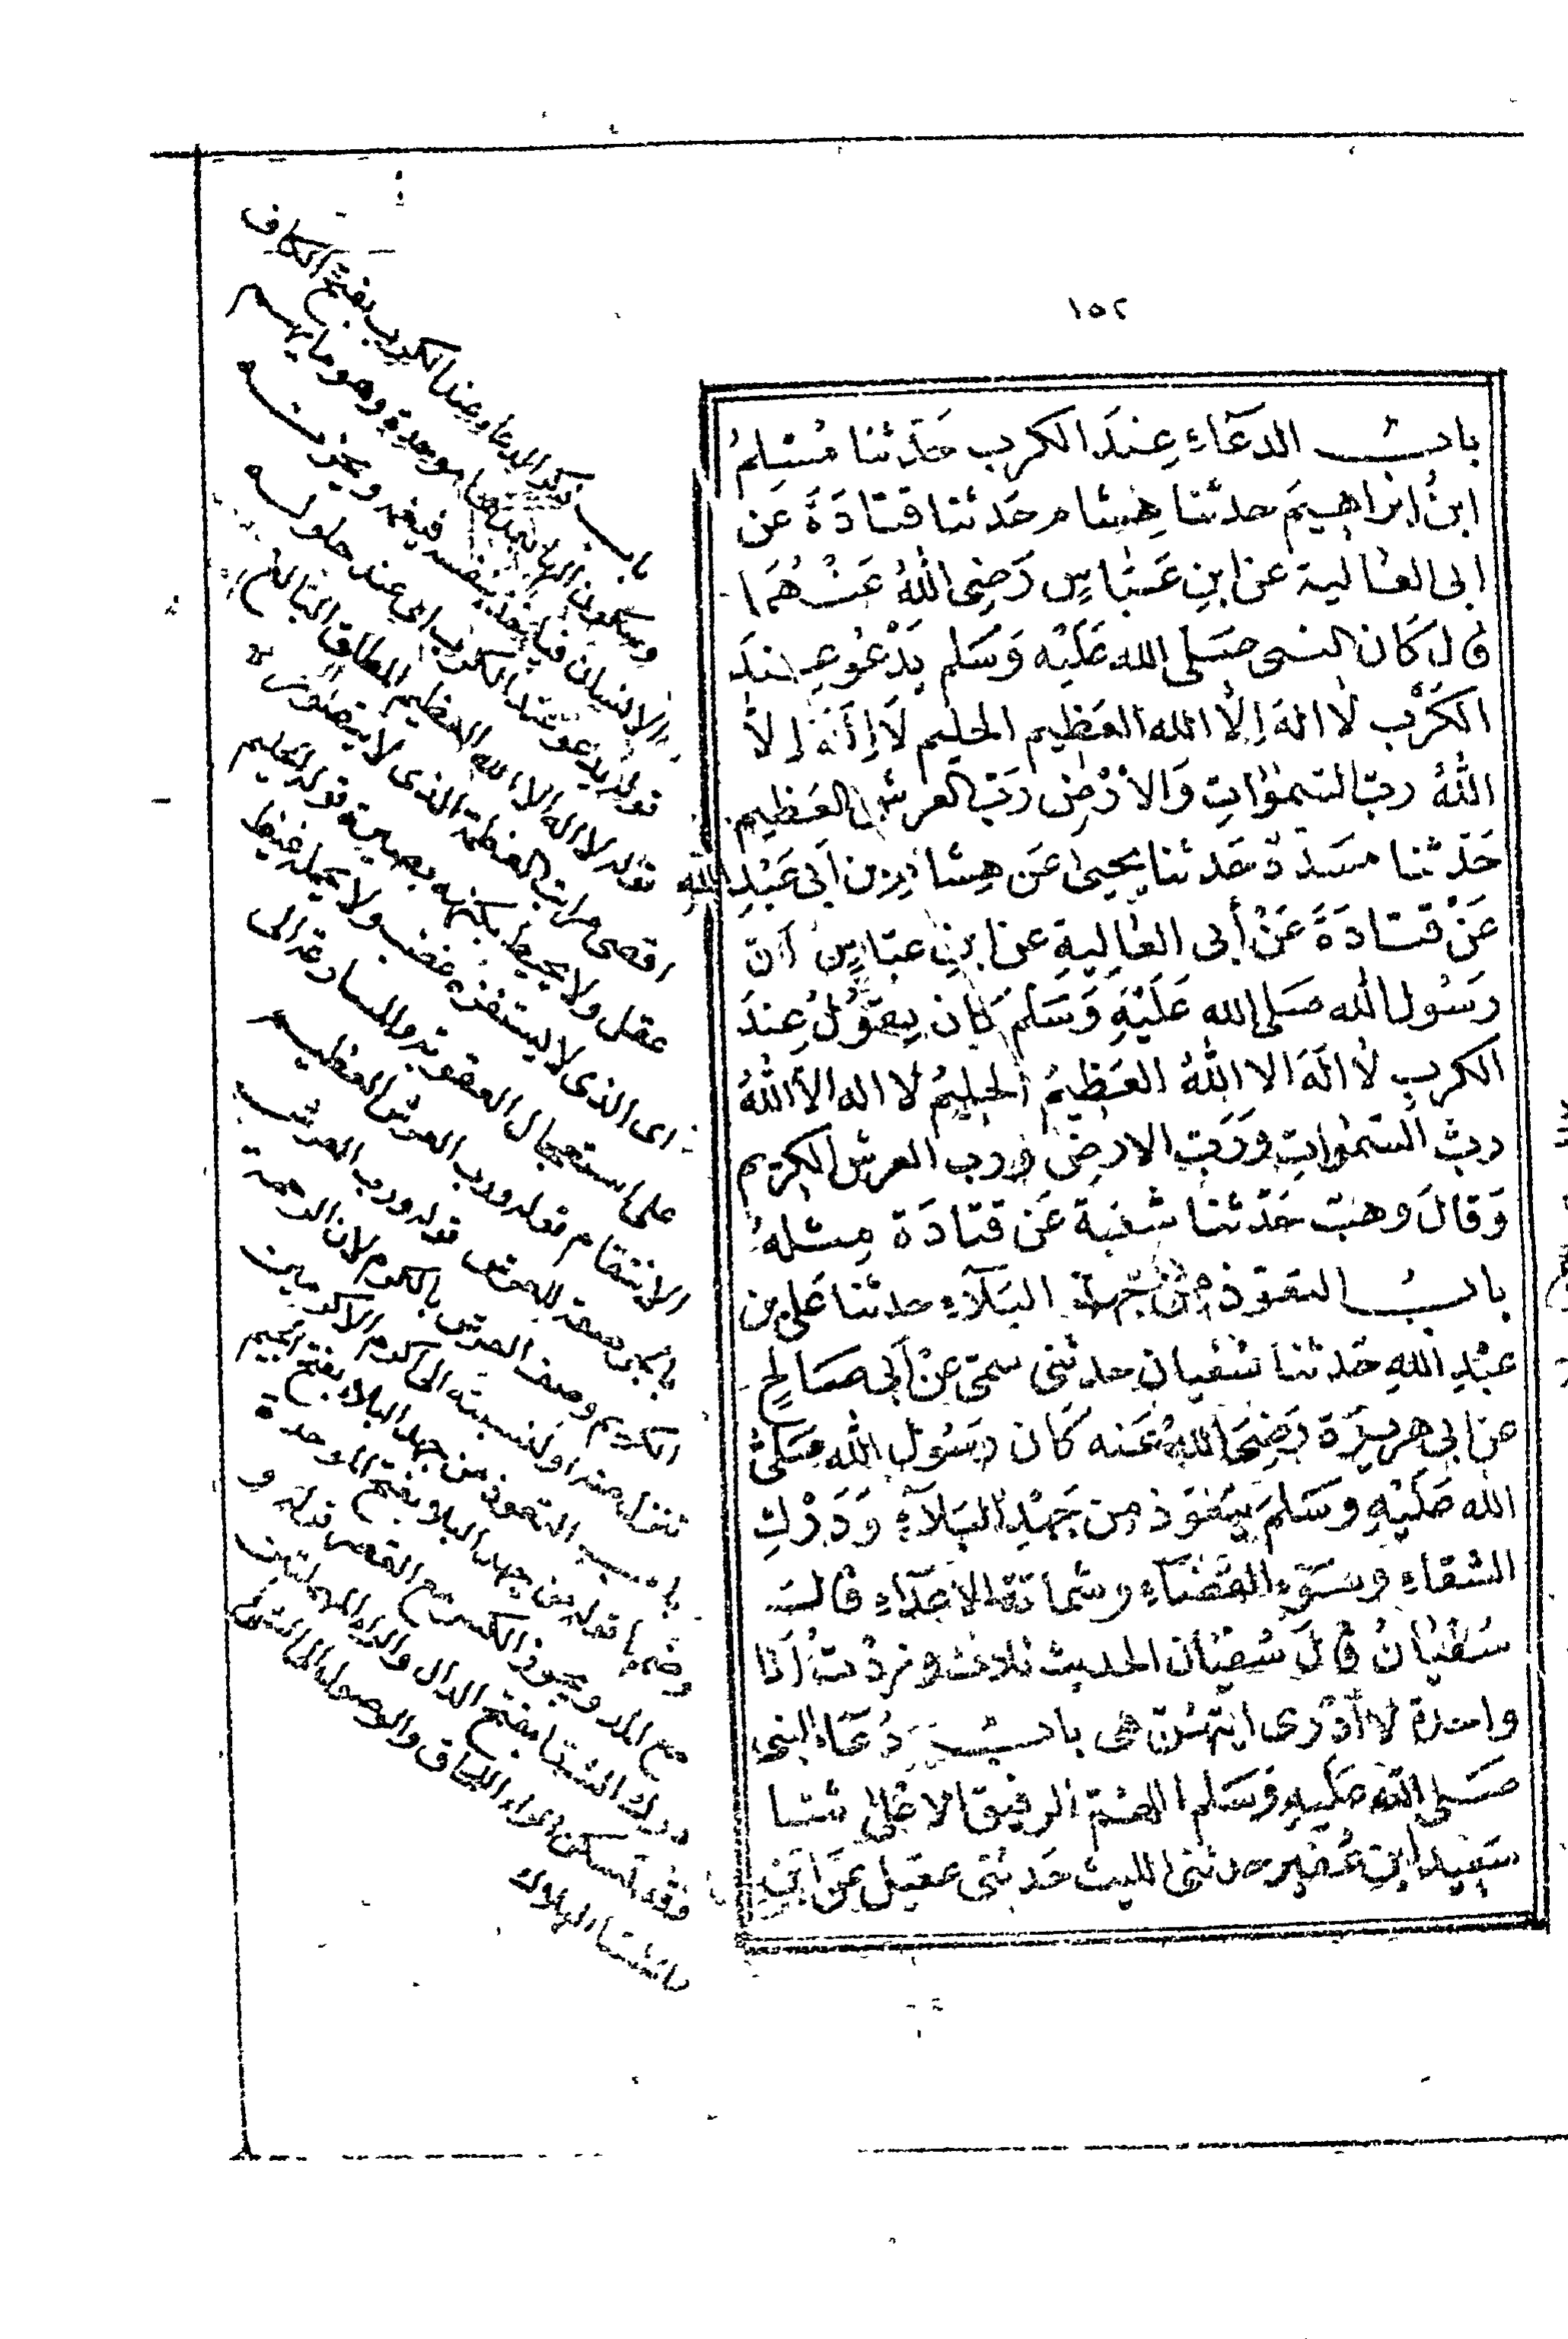 ١٥٢
باب الدعاء عِندَ الكرب حَدّثنا مُسْلِمُ
ابنُ ابْراهِيمَ حدثنا هِشام حَدثنا قتادَةَ عَن
ابى العالية عن ابنِ عَبّاسٍ رَضِىَ اللهُ عَنْهُمَا
قال كَانَ النبى صَلى الله عَلَيْه وَسَلم يَدْعُو عِندَ
الكَرْبِ لا الهَ اِلّا الله العَظِيم الحليم لَا اِلَهَ اِلّا
اللهُ ربّ السّمٰوَاتِ وَالاَرْضِ رَبّ العرشِ العَظِيم
حَدّثنا مسَدّدٌ حَدثنا يحيى عَن هِشام بن اَبى عَبْدِ اللهِ
عَنْ قتادَةَ عَنْ أبى العَالِيةِ عن ابنِ عبّاسٍ اَنّ
رَسُول الله صَلى الله عَلَيْهِ وَسَلمَ كان يقوُلُ عِندَ
الكربِ لا الَهَ الا اللهُ العَظِيمُ الحليمُ لا اله الا اللهُ
ربّ السّمٰواتِ وَرَبّ الارضِ ورب العرش الكريم
وَقالَ وهبٌ حَدّثنا شعْبَة عَن قتادَة مِثلهُ
بابُ التعَوّذ مِنْ جَهد البَلَآءِ حدثنا عَلى بن
عبْدِ اللهِ حَدثنا سُفيان حدثنى سمىّ عنْ اَبى صَالحٍ
عن ابى هريرَة رَضِىَ اللهُ عَنه كَان رسُول الله صَلى
الله عَلَيْهِ وسَلمَ يتعَوّذ مِن جَهْدِ البَلَآءِ وَدَرْكِ
الشقاءِ وسَوءِ القضَآءِ وشماتة الاعدَآءِ قال
سُفيَانُ قالَ سُفيَان الحديث ثلاث وزدْتُ اَنَا
واحدة لا اَدْرى ايّتهُنّ هى باب دُعَاءِ النبى
صَلى الله عَليهِ وَسَلم اللهُمّ الرفيق الاعْلى ثنا
سَعِيد ابن عُفَير حدثنى الليث حَدثنى عقيل عَن ابْنِ
باب ذكر الدعاء عند الكرب بفتح الكاف
وسكون الراء بعدها موحدة وهو ما يهم
الانسان فيأخذ بنفسه فيغمه ويحزنه
قوله يدعو عند الكرب اى عند حلوله
قوله لا اله الا الله العظيم المطلق البالغ
اقصى مراتب العظمة الذى لا يتصوره
عقل ولا يحيط بكنهه بصيرة قوله الحليم
اى الذى لا يستفزه غضب ولا يحمله غيظ
على استعجال العقوبة والمسارعة الى
الانتقام قوله ورب العرش العظيم
بالجر صفة للعرش قوله ورب العرش
الكريم وصف العرش بالكرم لان الرحمة
تنزل منه او لنسبته الى اكرم الاكرمين
باب التعوذ من جهد البلاء بفتح الجيم
وضمها قوله من جهد البلاء بفتح الموحدة
مع المد ويجوز الكسر مع القصر قوله و
درك الشقاء بفتح الدال والراء المهملتين
وقد تسكن الراء اللحاق والوصول الى الشئ
والشقاء الهلاك